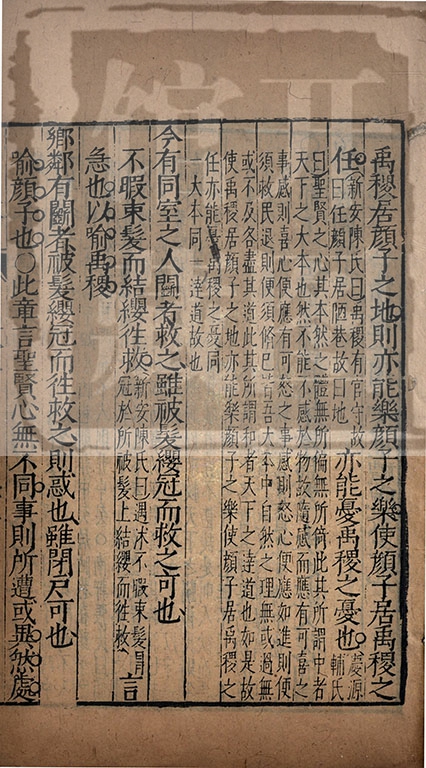 禹稷居顔子之地則亦能樂顔子之樂使顔子居禹稷之
任新安陳氏曰禹稷有官守故曰任顔子居陋巷故曰地亦能憂禹稷之憂也慶源輔氏
曰聖賢之心其本然之體無所偏無所倚此其所謂中者
天下之大本也然不能不感於物故隨感而應有可喜之
事感則喜心便應有可怒之事感則怒心便應如進則便
須救民退則便須脩己皆吾大本中自然之理無或過無
或不及各盡其道此其所謂和者天下之達道也如是故
使禹稷居顔子之地亦能樂顔子之樂使顔子居禹稷之
任亦能憂禹稷之憂同
一大本同一達道故也
今有同室之人鬬者救之雖被髮纓冠而救之可也
不暇束髮而結纓徃救新安陳氏曰遇沐不暇束髮冒冠於所被髮上結纓而徃救言
急也以喻禹稷
鄉鄰有鬬者被髮纓冠而徃救之則惑也雖閉戶可也
喻顔子也○此章言聖賢心無不同事則所遭或異然處